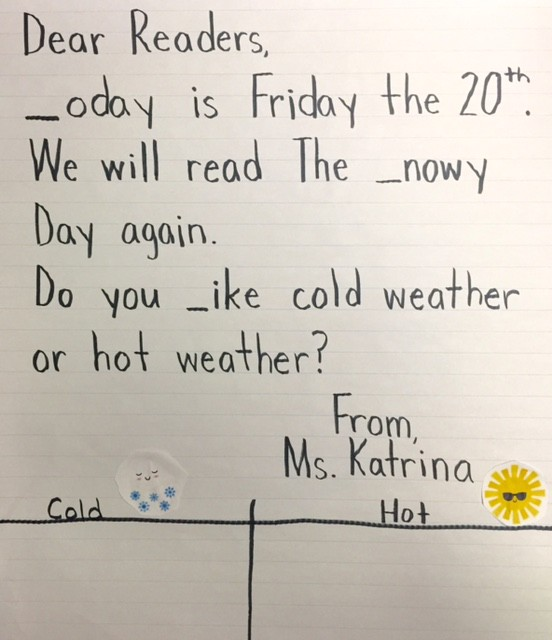 Dear Readers,
_oday is Friday the 20th.
We will read The _nowy
Day again.
Do you _ike cold weather
or hot weather?
From,
Ms. Katrina
Cold Hot